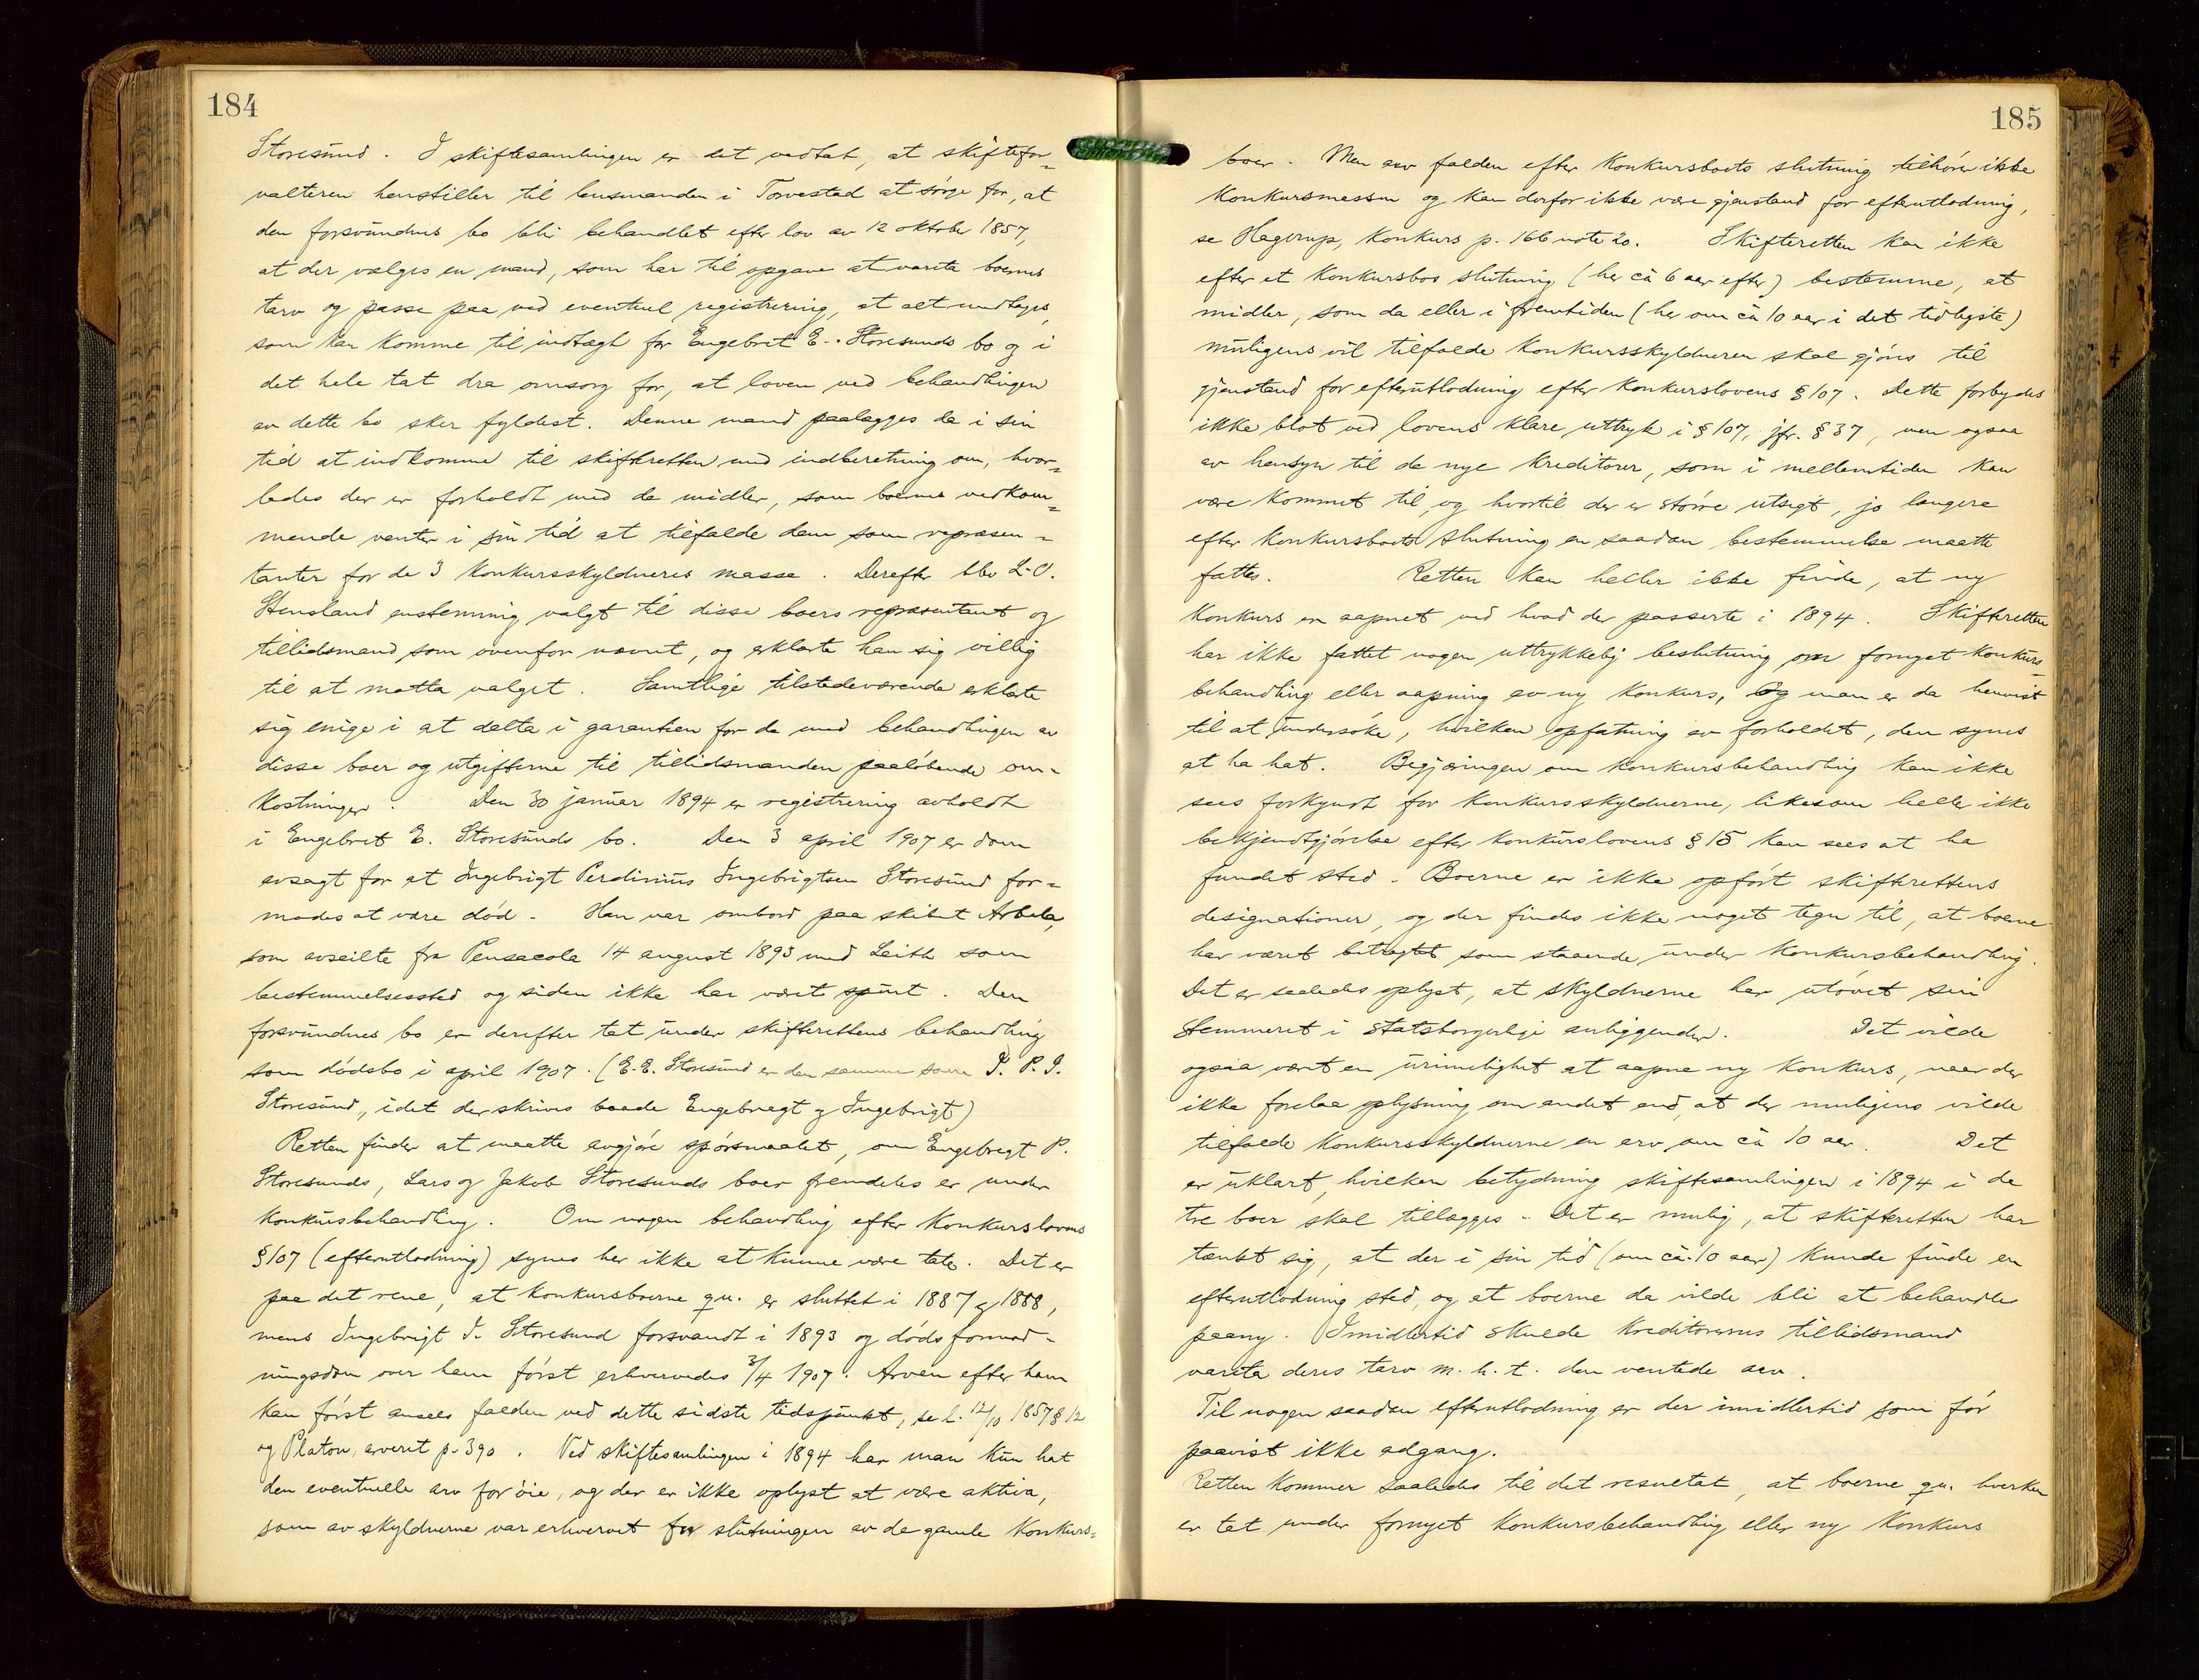 184
Storesund. I skiftesamlingen er det vedtat, at skiftefor=
valteren henstiller til lensmanden i Torvestad at sørge for, at
den forsvundnes bo bli behandlet efter lov av 12 oktober 1857,
at der vælges en mand, som har til opgave at vareta boernes
tarv og passe paa ved eventuel registrering, at alt medtages,
som kan komme til indtægt for Engebret E. Storesunds bo og i
det hele tat dra omsorg for, at loven ved behandlingen
av dette bo sker fyldest. Denne mand paalægges da i sin
tid at indkomme til skifteretten med indberetning om, hvor=
ledes der er forholdt med de midler, som boernes vedkom=
mende venter i sin tid at tilfalde dem som repræsen=
tanter for de 3 konkursskyldneres masse. Derefter blev L. O.
Stensland enstemmig valgt til disse boers repræsentant og
tillidsmand som ovenfor nævnt, og erklærte han sig villig
til at motta valget. Samtlige tilstedeværende erklærte
sig enige i at delta i garantien for de med behandlingen av
disse boer og utgifterne til tillidsmanden paaløbende om=
kostninger. Den 30 januar 1894 er registrering avholdt
i Engebret E. Storesunds bo. Den 3 april 1907 er dom
avsagt for at Ingebrigt Perdinius Ingebrigtsen Storesund for=
modes at være død. Han var ombord paa skibet Arbela,
som avseilte fra Pensacola 14 august 1893 med Leith som
bestemmelsessted og siden ikke har været spurt. Den
forsvundnes bo er derefter tat under skifterettens behandling
som dødsbo i april 1907. (E. E. Storesund er den samme som I. P. I.
Storesund, idet der skrives baade Engebregt og Ingebrigt)
Retten finder at maatte avgjøre spørsmaalet, om Engebregt P.
Storesunds, Lars og Jakob Storesunds boer fremdeles er under
konkursbehandling. Om nogen behandling efter konkurslovens
§ 107 (efterutlodning) synes her ikke at kunne være tale. Det er
paa det rene, at konkursboerne qu. er sluttet i 1887 og 1888,
mens Ingebrigt I. Storesund forsvandt i 1893 og dødsformod=
ningsdom over ham først erhvervedes 3/4 1907. Arven efter ham
kan først ansees falden ved dette sidste tidspunkt, se l. 12/10 1857 § 12
og Platou, arveret p. 390. Ved skiftesamlingen i 1894 har man kun hat
den eventuelle arv for øie, og der er ikke oplyst at være aktiva,
som av skyldnerne var erhvervet før slutningen av de gamle konkurs=
185
boer. Men arv falden efter konkursboets slutning tilhører ikke
konkursmassen og kan derfor ikke være gjenstand for efterutlodning,
se Hagerup, konkurs p. 166 note 20. Skifteretten kan ikke
efter et konkursbos slutning (her ca 6 aar efter) bestemme, at
midler, som da eller i fremtiden (her om ca 10 aar i det tidligste)
muligens vil tilfalde konkursskyldneren skal gjøres til
gjenstand for efterutlodning efter konkurslovens § 107. Dette forbydes
ikke blot ved lovens klare uttryk i § 107, jfr. § 37, men ogsaa
av hensyn til de nye kreditorer, som i mellemtiden kan
være kommet til, og hvortil der er større utsigt, jo længere
efter konkursboets slutning en saadan bestemmelse maatte
fattes. Retten kan heller ikke finde, at ny
konkurs er aapnet ved hvad der passerte i 1894. Skifteretten
har ikke fattet nogen uttrykkelig beslutning om fornyet konkurs=
behandling eller aapning av ny konkurs, og man er da henvist
til at undersøke, hvilken opfatning av forholdet, den synes
at ha hat. Begjæringen om konkursbehandling kan ikke
sees forkyndt for konkursskyldnerne, likesom heller ikke
bekjendtgjørelse efter konkurslovens § 15 kan sees at ha
fundet sted. Boerne er ikke opført skifterettens
designationer, og der findes ikke noget tegn til, at boerne
har været betragtet som staaende under konkursbehandling.
Det er saaledes oplyst, at skyldnerne har utøvet sin
stemmeret i statsborgerlige anliggender. Det vilde
ogsaa været en urimelighet at aapne ny konkurs, naar der
ikke forelaa oplysning om andet end, at der muligens vilde
tilfalde konkursskyldnerne en arv om ca 10 aar. Det
er uklart, hvilken betydning skiftesamlingen i 1894 i de
tre boer skal tillægges. Det er mulig, at skifteretten har
tænkt sig, at der i sin tid (om ca. 10 aar) kunde finde en
efterutlodning sted, og at boerne da vilde bli at behandle
paany. Imidlertid skulde kreditorernes tillidsmand
vareta deres tarv m. h. t. den ventede arv.
Til nogen saadan efterutlodning er der imidlertid som før
paavist ikke adgang.
Retten kommer saaledes til det resultat, at boerne qu. hverken
er tat under fornyet konkursbehandling eller ny konkurs